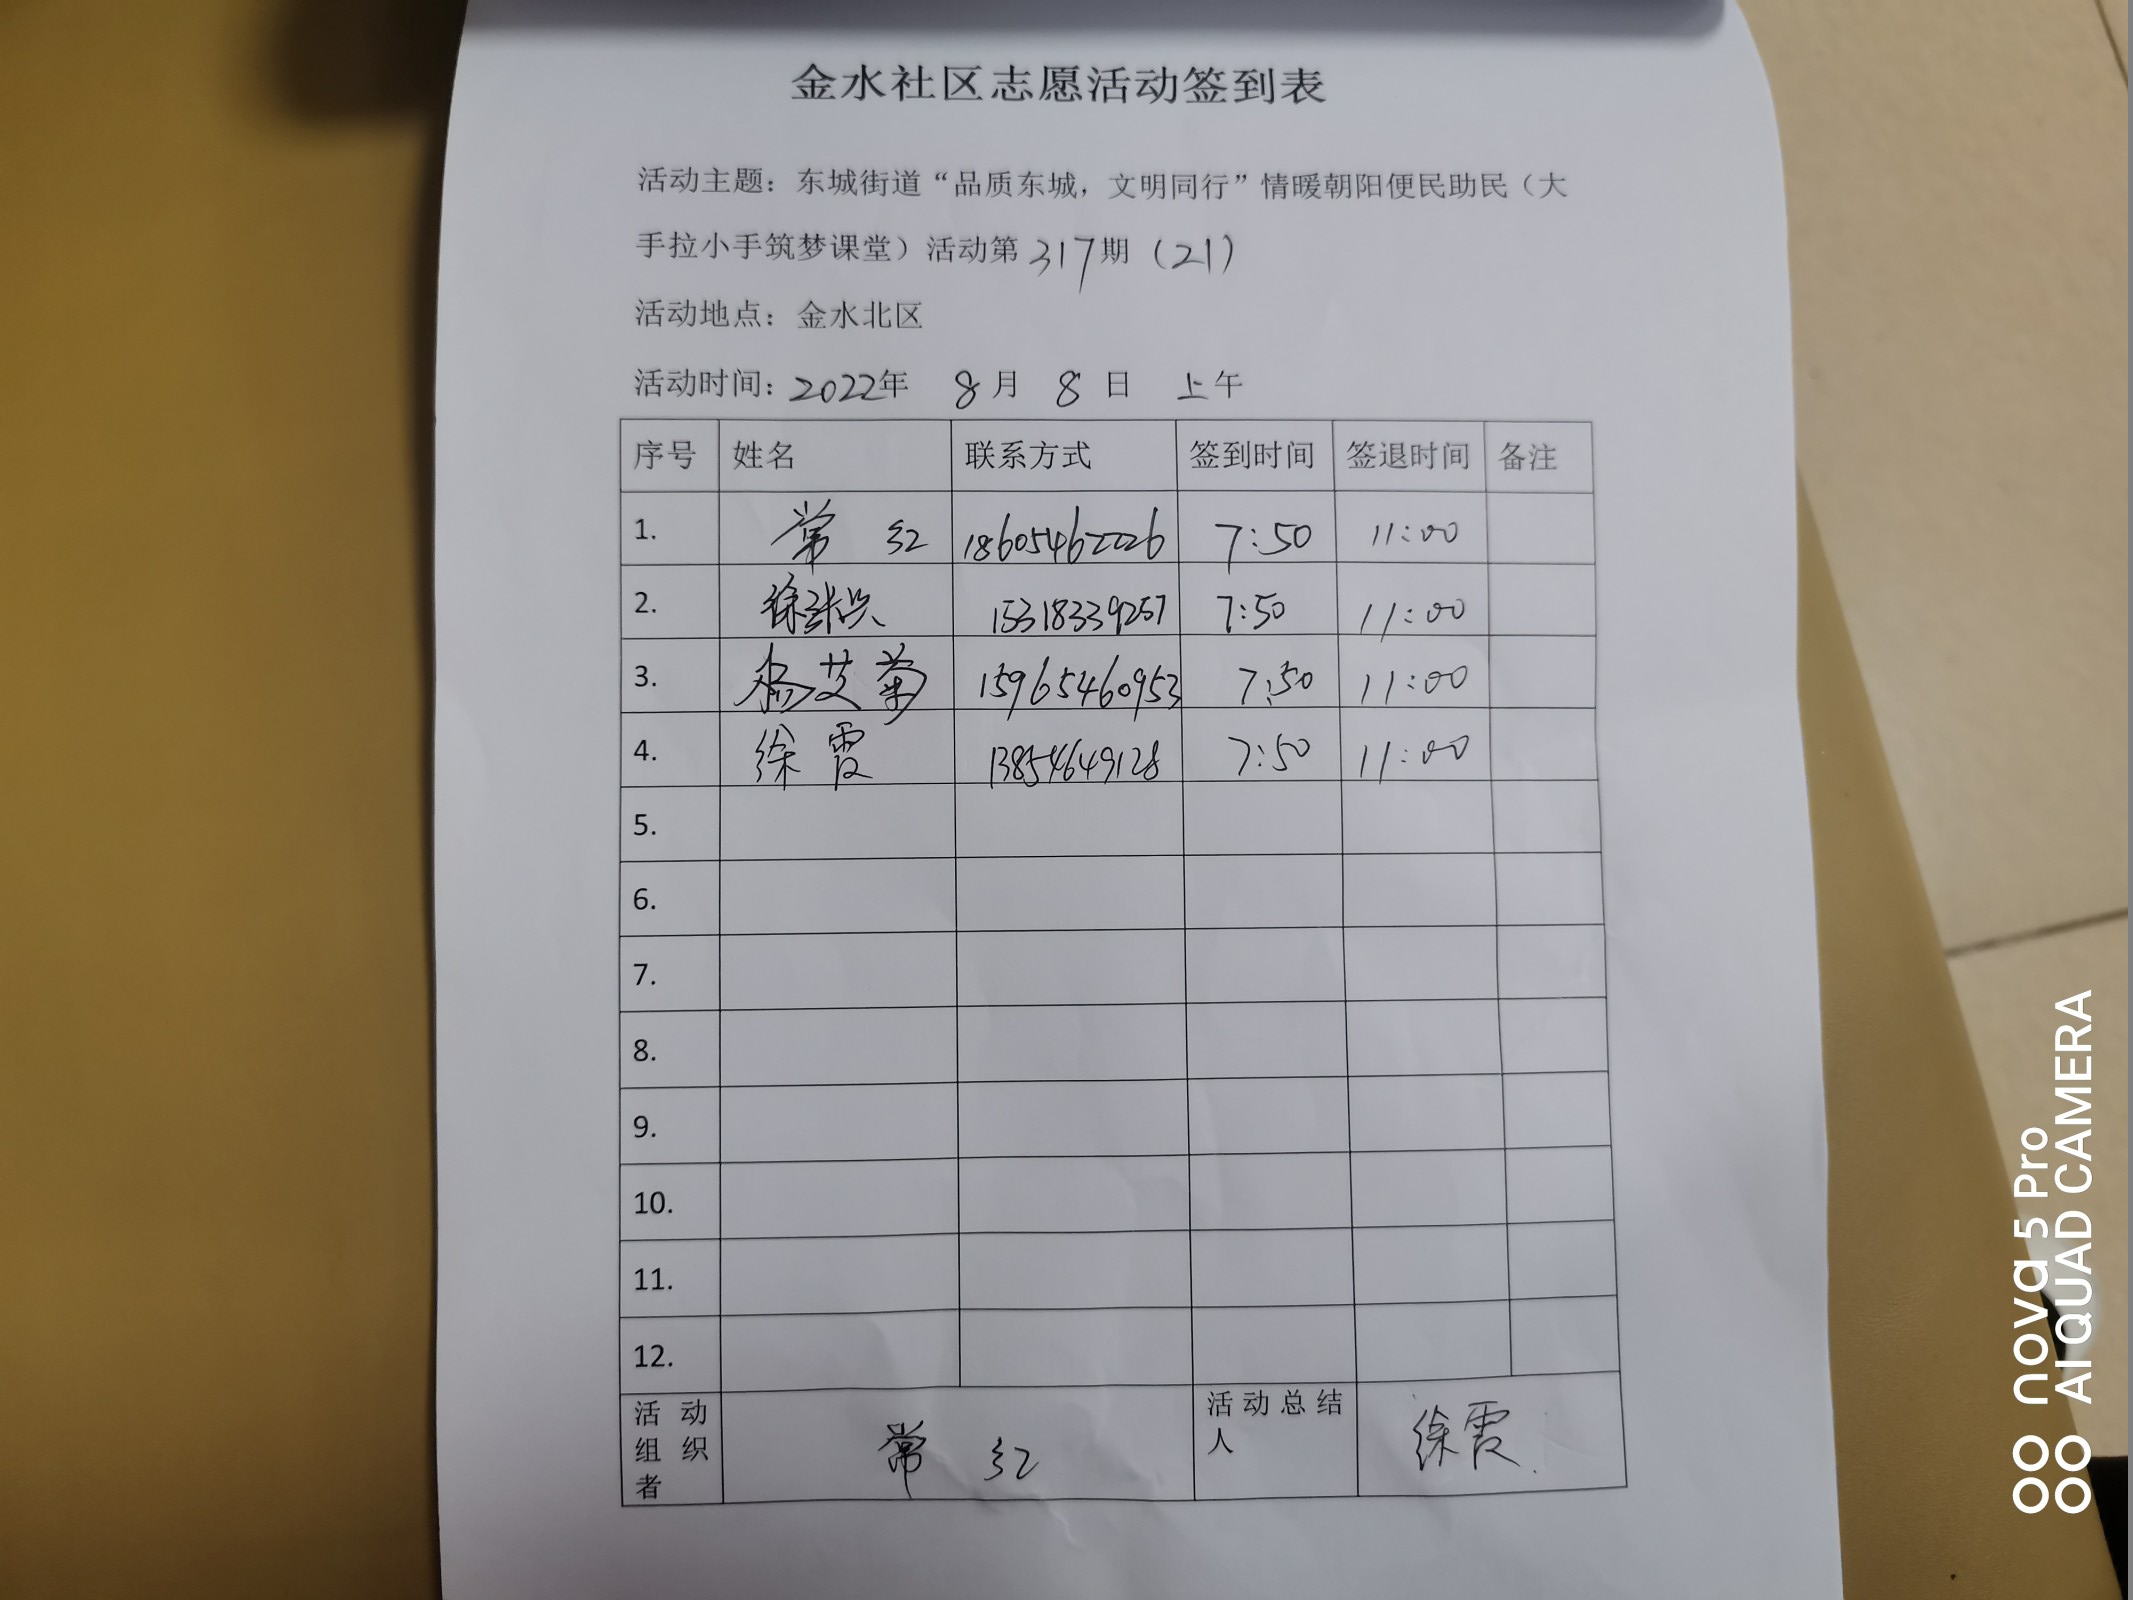 金水社区志愿活动签到表
活动主题：东城街道“品质东城，文明同行”情暖朝阳便民助民（大
手拉小手筑梦课堂）活动第317期（21）
活动地点：金水北区
活动时间：2022年 8月 8日 上午
序号 姓名 联系方式 签到时间 签退时间 备注
1. 常红 18605462226 7:50 11:00
2. 徐 15318339257 7:50 11:00
3. 杨艾菊 15965460953 7:50 11:00
4. 徐霞 13854649128 7:50 11:00
5.
6.
7.
8.
9.
10.
11.
12.
活动组织者 常红 活动总结人 徐霞
nova 5 Pro
AI QUAD CAMERA